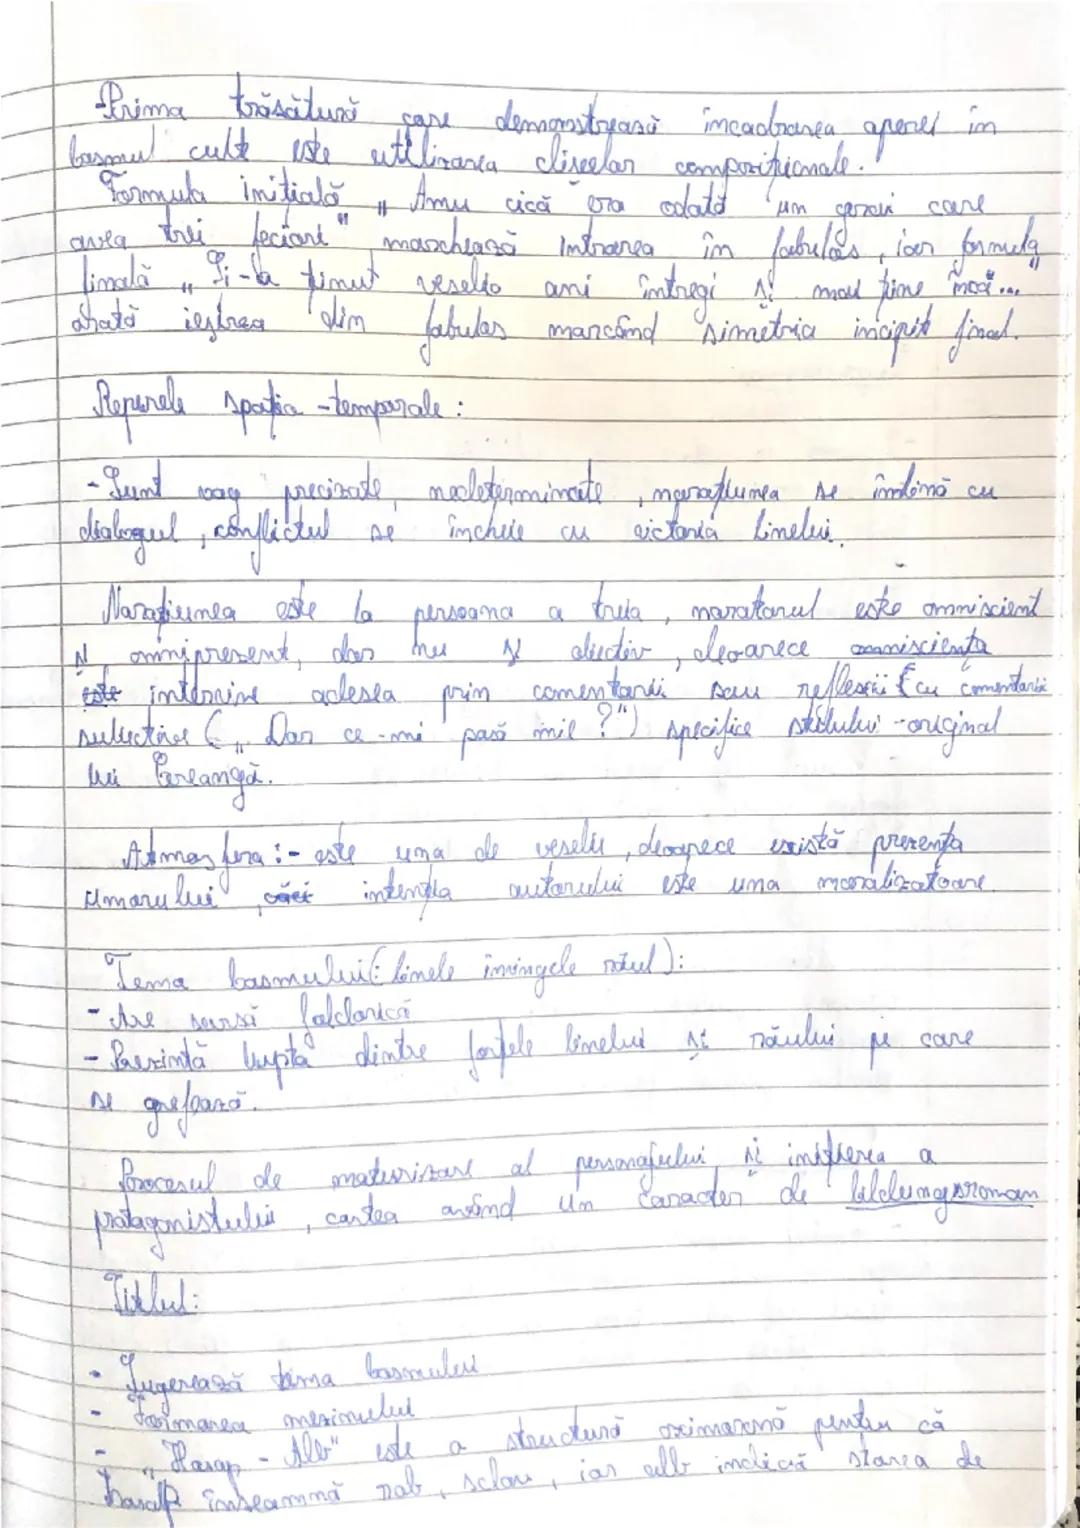 -Prima trăsătură care demonstrează încadrarea operei în
basmul cult este utilizarea clișeelor compoziționale.
Formula inițială „Amu cică era odată un crai care
avea trei feciori" marchează intrarea în fabulos, iar formula
finală „Și-a ținut veselia ani întregi și mai ține încă..."
arată ieșirea din fabulos marcând simetria incipit final.
Reperele spațio-temporale:
- Sunt vag precizate, nedeterminate, narațiunea se îmbină cu
dialogul, conflictul se încheie cu victoria binelui.
Narațiunea este la persoana a treia, naratorul este omniscient
și omniprezent, dar nu și obiectiv, deoarece omnisciența
este intervine adesea prin comentarii sau reflexii (cu comentarii
subiective („Dar ce-mi pasă mie?") specifice stilului-original
lui Creangă.
Atmosfera:- este una de veselie, deoarece există prezența
umorului, căci intenția autorului este una moralizatoare.
Tema basmului(: binele învingele răul):
- Are sursă folclorică
- Prezintă lupta dintre forțele binelui și răului pe care
se grefează.
Procesul de maturizare al personajului și inițierea a
protagonistului, cartea având un caracter de bildungsroman
Titlul:
- Sugerează tema basmului
- Formarea mezinului
- „Harap-Alb" este o structură oximoronă pentru că
harap înseamnă rob, sclav, iar alb indică starea de